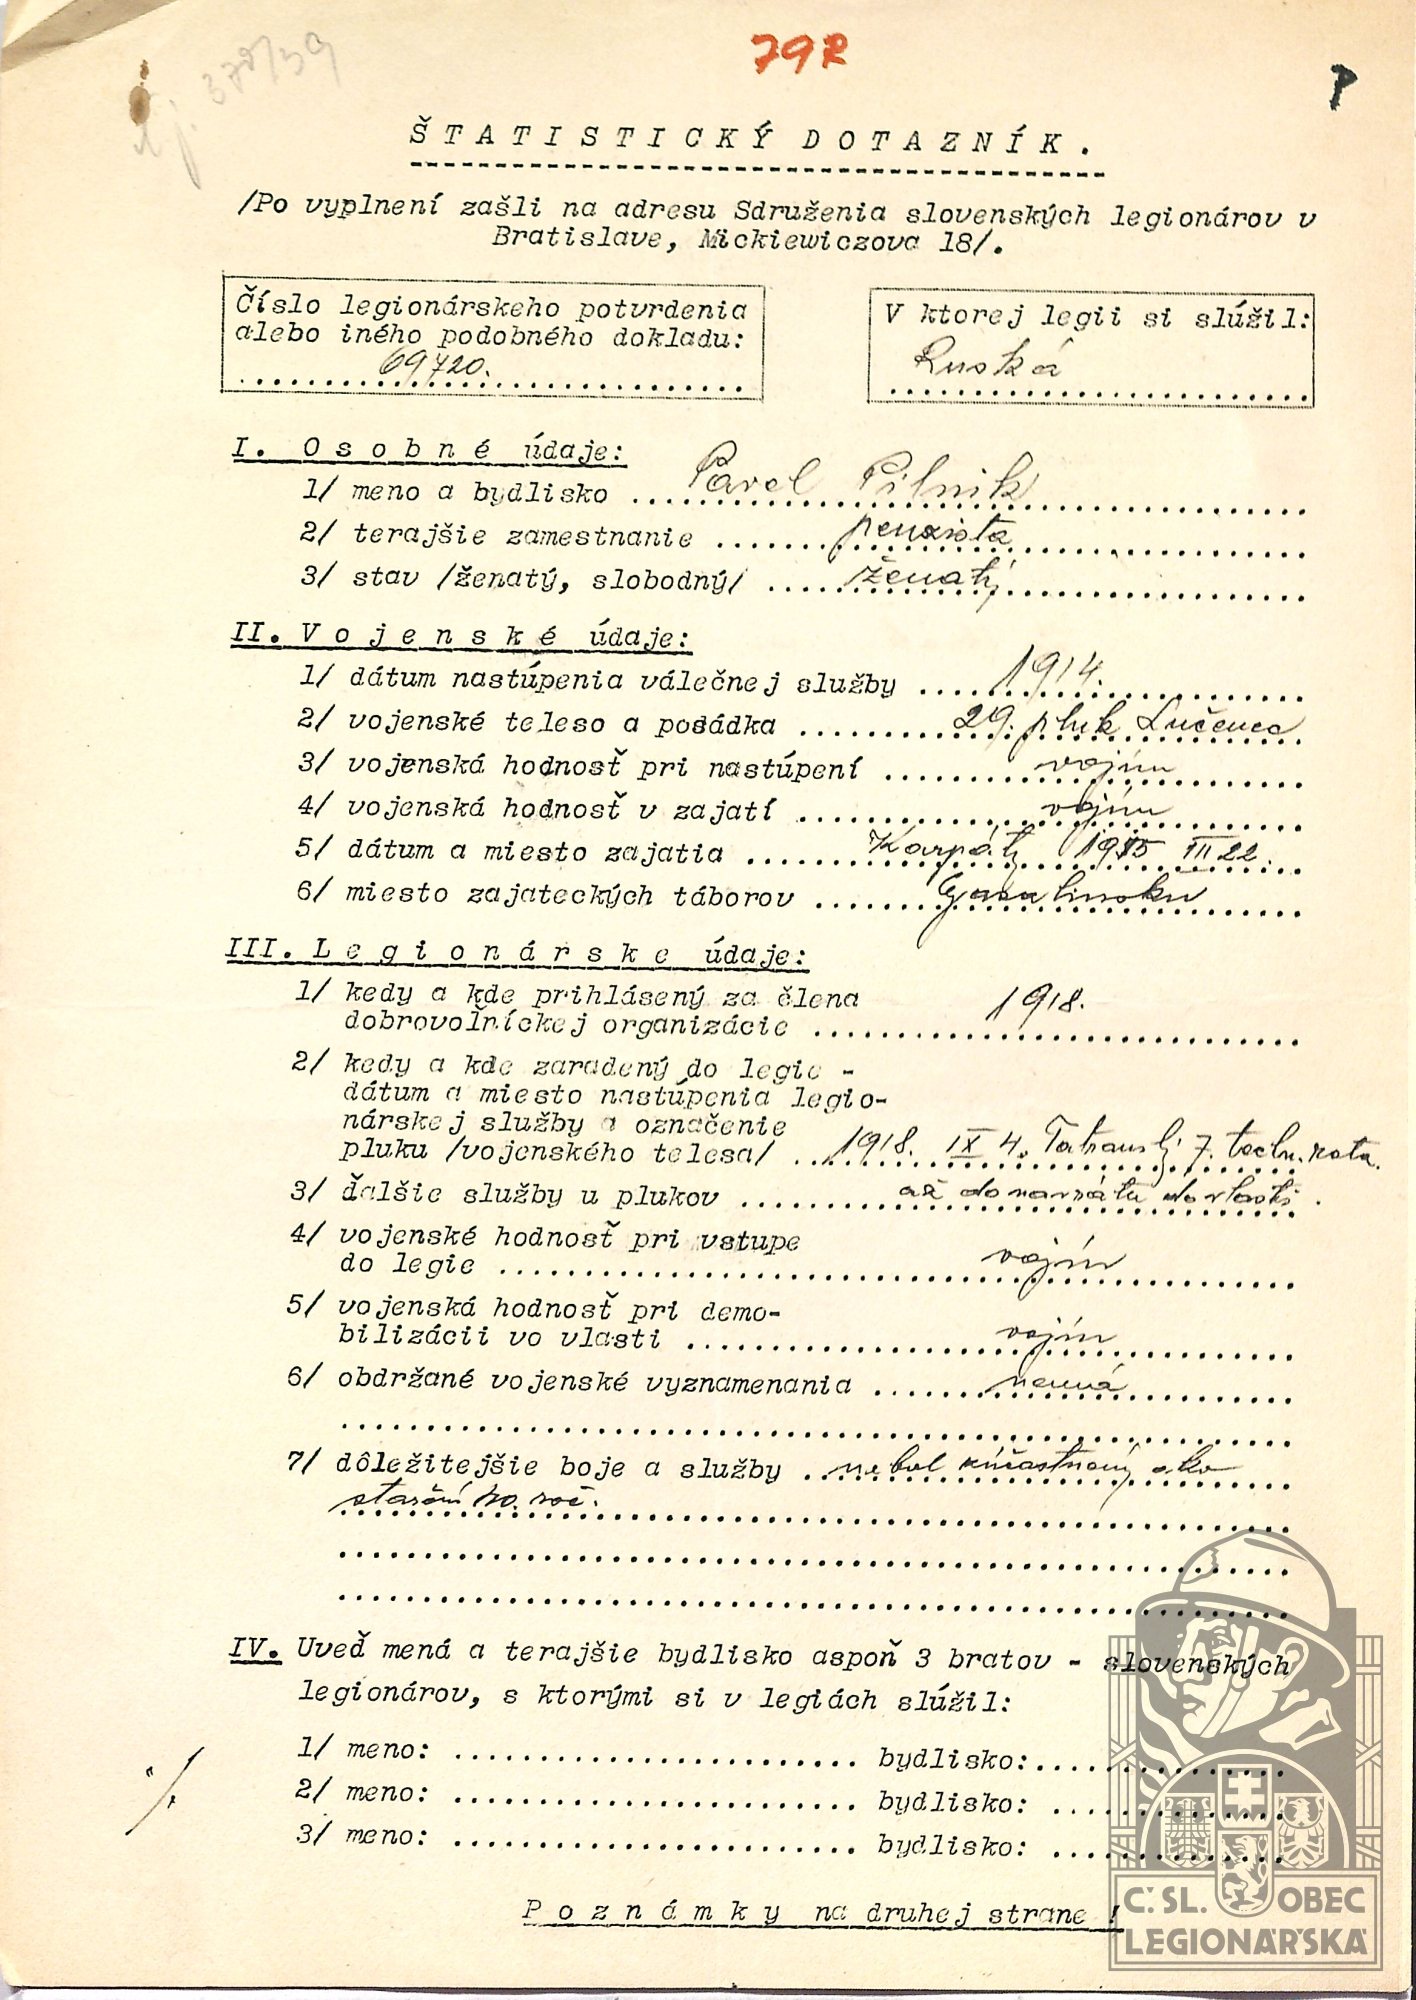 79R
378/39
Š T A T I S T I C K Ý  D O T A Z N Í K .
/Po vyplnení zašli na adresu Sdruženia slovenských legionárov v
Bratislave, Mickiewiczova 18/.
Číslo legionárskeho potvrdenia
alebo iného podobného dokladu:
69720.
V ktorej legii si slúžil:
Ruská
I. O s o b n é údaje:
1/ meno a bydlisko Pavel Pilnik
2/ terajšie zamestnanie penzista
3/ stav /ženatý, slobodný/ ženatý
II. V o j e n s k é údaje:
1/ dátum nastúpenia válečnej služby 1914.
2/ vojenské teleso a posádka 29. pluk Lučenec
3/ vojenská hodnosť pri nastúpení vojín
4/ vojenská hodnosť v zajatí vojín
5/ dátum a miesto zajatia Karpáty 1915 III 22.
6/ miesto zajateckých táborov
III. L e g i o n á r s k e údaje:
1/ kedy a kde prihlásený za člena
dobrovoľníckej organizácie 1918.
2/ kedy a kde zaradený do legie -
dátum a miesto nastúpenia legio-
nárskej služby a označenie
pluku /vojenského telesa/ 1918. IX 4. Tatranský 7. techn. rota.
3/ ďalšie služby u plukov až do návratu do vlasti.
4/ vojenské hodnosť pri vstupe
do legie vojín
5/ vojenská hodnosť pri demo-
bilizácii vo vlasti vojín
6/ obdržané vojenské vyznamenania nemá
7/ dôležitejšie boje a služby nebol zúčastnený ako
starší roč.
IV. Uveď mená a terajšie bydlisko aspoň 3 bratov - slovenských
legionárov, s ktorými si v legiách slúžil:
1/ meno: bydlisko:
2/ meno: bydlisko:
3/ meno: bydlisko:
P o z n á m k y na druhej strane !
Č.SL. OBEC
LEGIONÁŘSKÁ